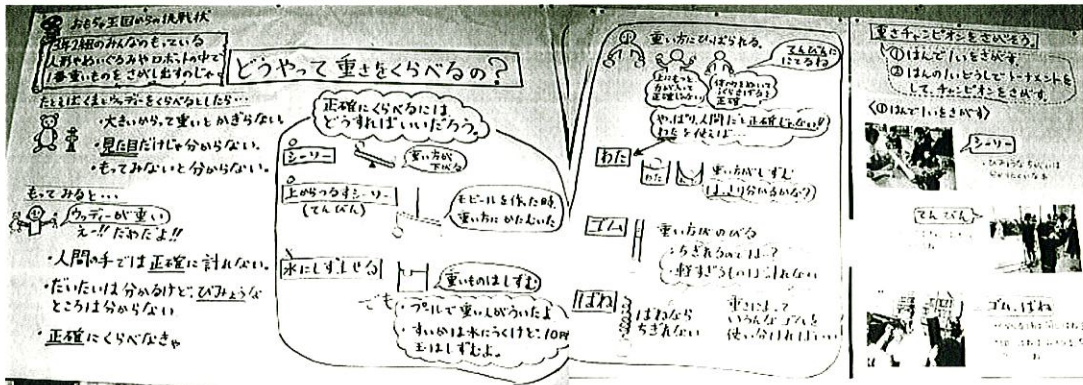 おもちゃ王国からの挑戦状
3年2組のみんなのもっている
人形やぬいぐるみやロボットの中で
1番重いものをさがし出すのじゃ
たとえばくまとウッディーをくらべるとしたら…
・大きいからって重いとかぎらない
・見た目だけじゃ分からない。
・もってみないと分からない。
もってみると…
ウッディーが重い
えー!!だわだよ!!
・人間の手では正確に計れない。
・だいたいは分かるけど、びみょうな
ところは分からない
・正確にくらべなきゃ
どうやって重さをくらべるの?
正確にくらべるには
どうすればいいだろう。
シーソー
重い方が
下がる
上からつるすシーソー
(てんびん)
モビールを作った時、
重い方にかたむいた
水にしずませる
重いものはしずむ
でも
・プールで重い人がういたよ
・すいかは水にうくけど、10円
玉はしずむよ。
重い方にひっぱられる。
てんびんに
にてるね
正確
やっぱり人間だと正確じゃない!!
わたを使えば…
わた
わた
重い方がしずむ
ゴム
重い方がのびる
・ちぎれるのでは…?
・軽すぎるものは計れない
ばね
ばねなら
ちぎれない
重さによって
いろんなゴムを
使い分ければいい
重さチャンピオンをさがそう。
①はんで1いをさがす。
②はんの1いどうしでトーナメントを
して、チャンピオンをさがす。
〈①はんで1いをさがす〉
シーソー
てんびん
ゴム、ばね